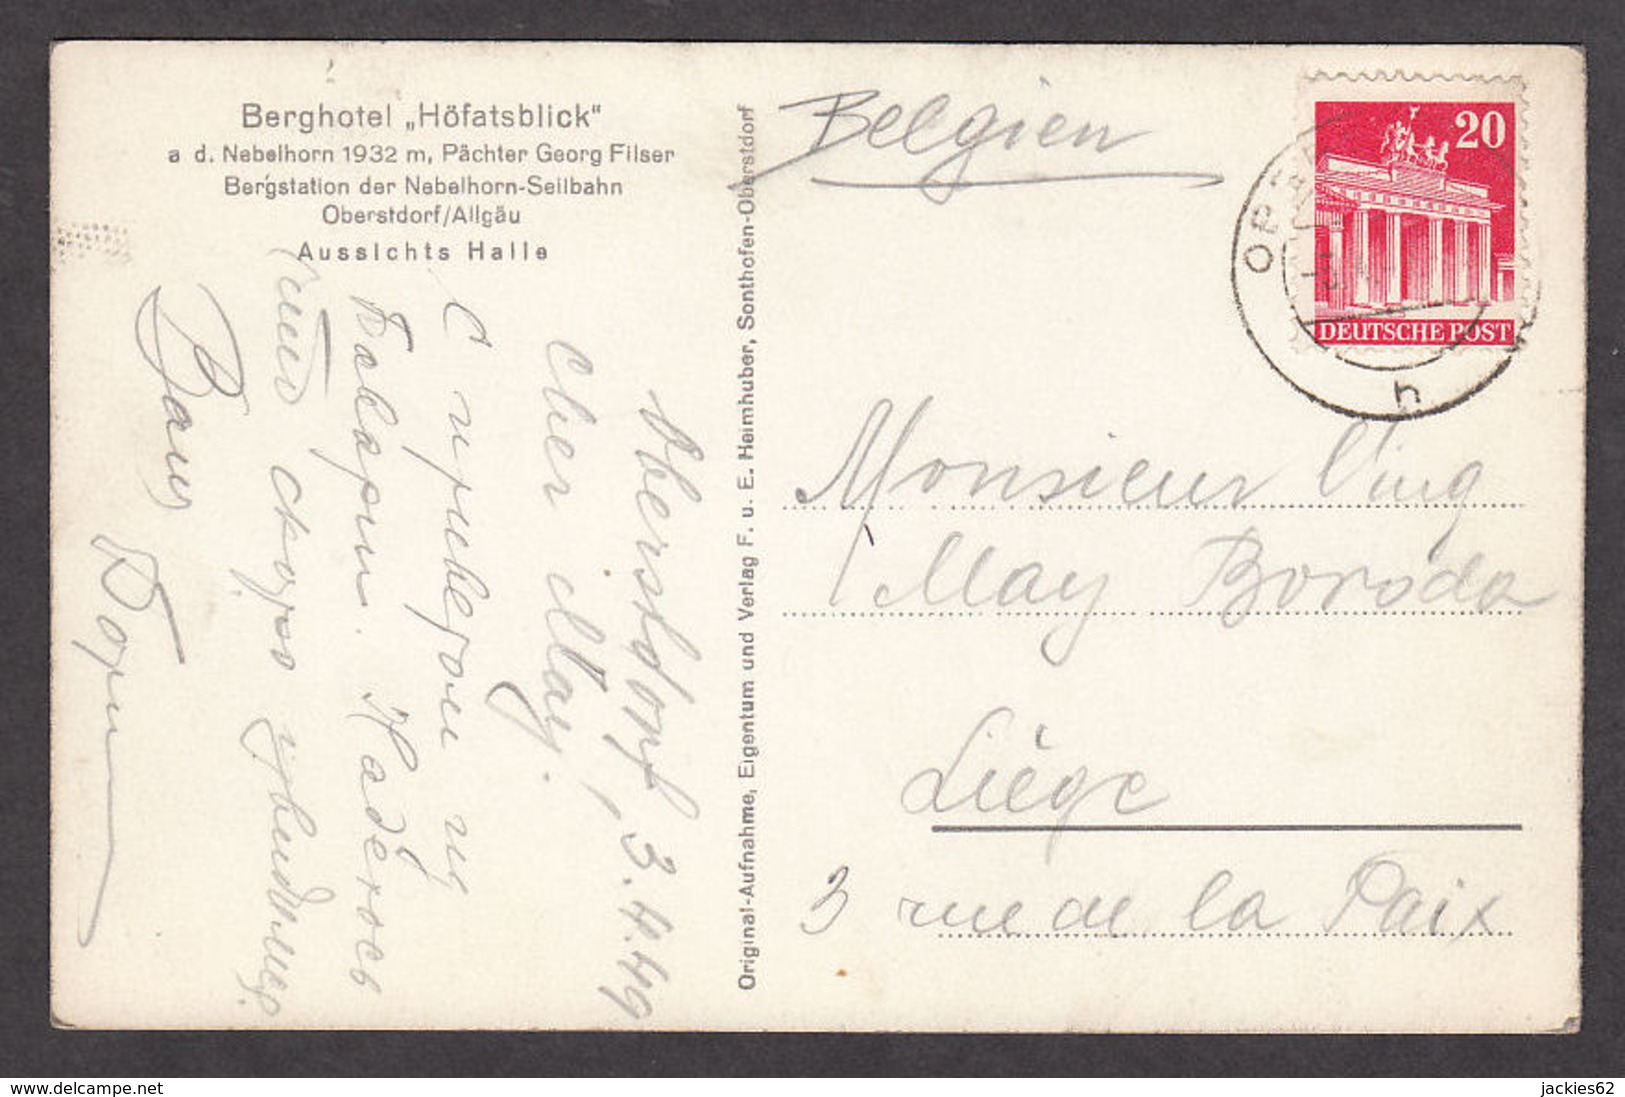 Berghotel „Höfatsblick"
a d. Nebelhorn 1932 m, Pächter Georg Filser
Bergstation der Nebelhorn-Seilbahn
Oberstdorf/Allgäu
Aussichts Halle
Oberstdorf, 3.4.49
Cher May.
С приветом из
Баварии. Надеюсь
что скоро увидимся.
Ваш
Original-Aufnahme, Eigentum und Verlag F. u. E. Heimhuber, Sonthofen-Oberstdorf
Belgien
20
DEUTSCHE POST
h
Monsieur
May Boroda
Liège
3 rue de la Paix
delcampe.net
jackies62